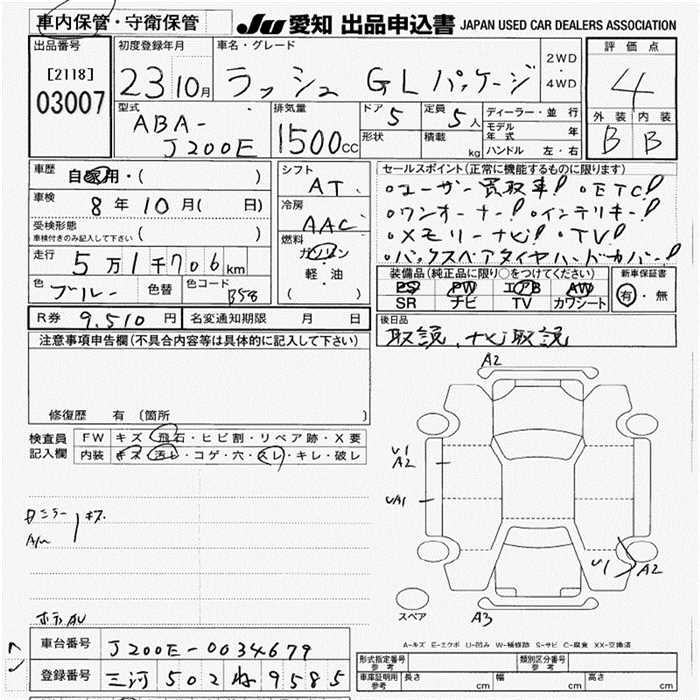 車内保管・守衛保管
JU 愛知 出品申込書 JAPAN USED CAR DEALERS ASSOCIATION
出品番号
[2118]
03007
初度登録年月
23 10月
車名・グレード
ラッシュ GLパッケージ
2WD
・
4WD
評価点
4
外装 内装
B B
型式
ABA-
J200E
排気量
1500cc
ドア 5
形状
定員 5人
積載 kg
ディーラー・並行
モデル年式 年
ハンドル 左・右
車歴 自家用・( )
車検 8年10月( 日)
受検形態
車検付きのみ記入して下さい ( )
走行 5万1千706km
色 ブルー 色替 色コード B58
シフト AT
冷房 AAC
燃料
ガソリン
軽・油
( )
セールスポイント(正常に機能するものに限ります)
・ユーザー買取車! ・ETC!
・ワンオーナー! ・インテリキー!
・メモリーナビ! ・TV!
・バックスペアタイヤハードカバー!
装備品(純正品に限り○をつけてください)
PS PW エアB AW
SR ナビ TV カワシート
新車保証書
有・無
R券 9,510円 名変通知期限 月 日
後日品
取説、ナビ取説
注意事項申告欄(不具合内容等は具体的に記入して下さい)
修復歴 有 (箇所 )
検査員
記入欄
FW キズ・飛石・ヒビ割・リペア跡・X要
内装 キズ・汚レ・コゲ・穴・スレ・キレ・破レ
A2
U1
A2
UA1
U1
A2
A3
スペア
A-キズ E-エクボ U-凹み W-補修跡 S-サビ C-腐食 XX-交換済
車台番号 J200E-0034679
登録番号 三河 502 ね 9585
形式指定番号
参考
類別区分番号
参考
車庫証明用
参考
長さ cm 幅 cm 高さ cm